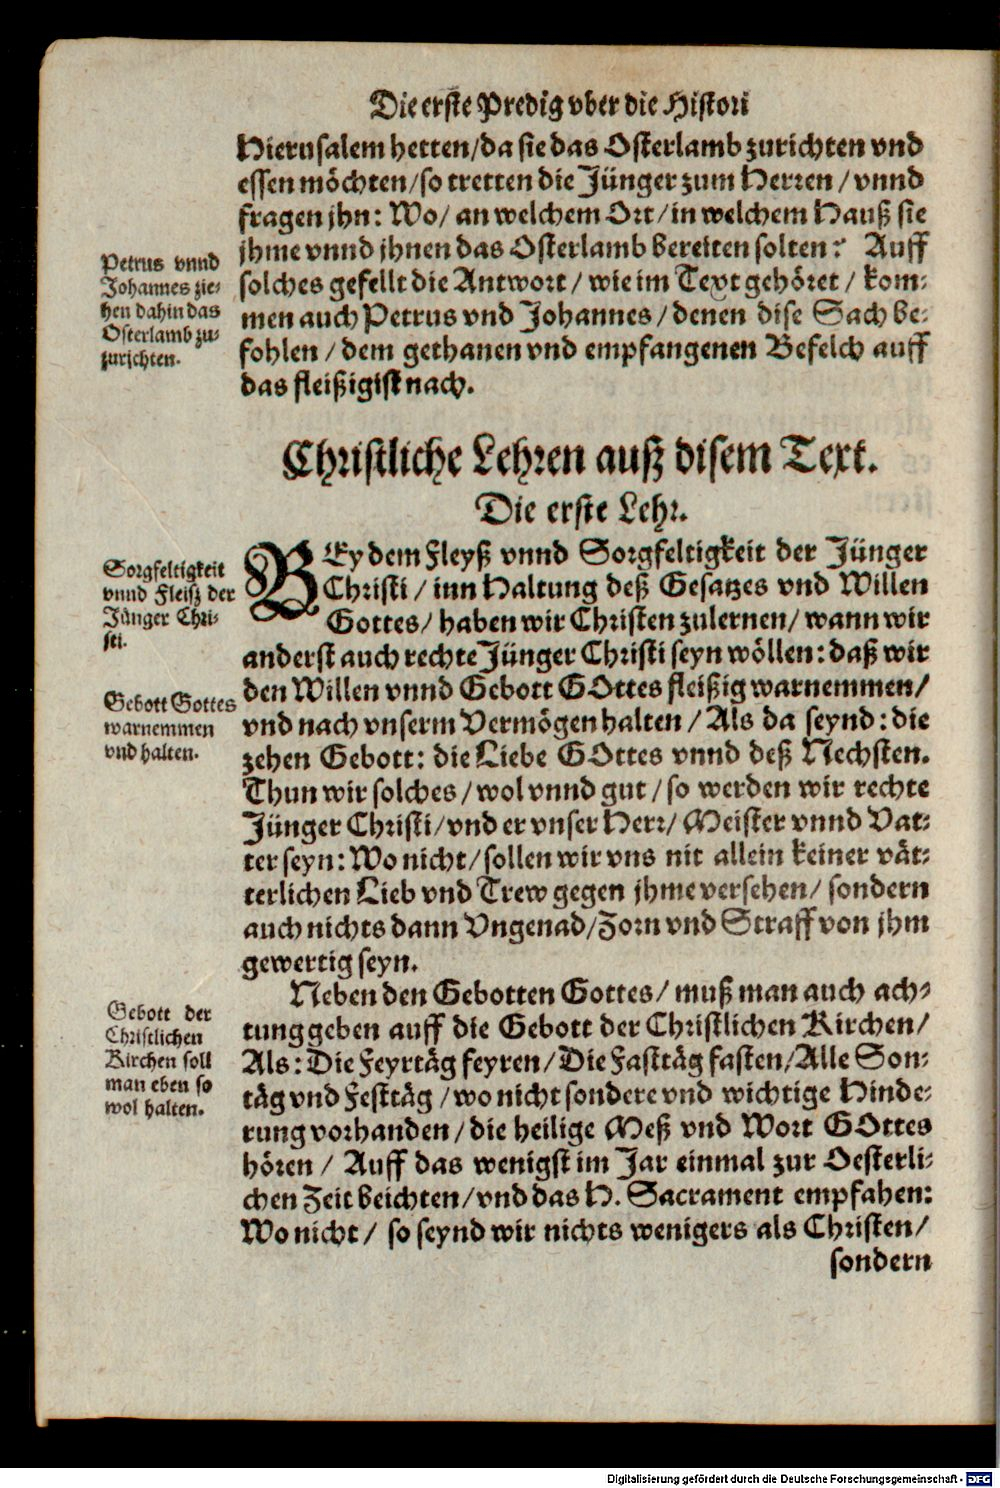 Die erste Predig vber die Histori
Hierusalem hetten/da sie das Osterlamb zurichten vnd
essen möchten/so tretten die Jünger zum Herren/vnnd
fragen jhn: Wo/an welchem Ort/in welchem Hauß sie
jhme vnnd jhnen das Osterlamb bereiten solten? Auff
solches gefellt die Antwort/wie im Text gehöret/kom-
men auch Petrus vnd Johannes/denen dise Sach be-
fohlen/dem gethanen vnd empfangenen Befelch auff
das fleißigist nach.
Petrus vnnd
Johannes zie-
hen dahin das
Osterlamb zu-
zurichten.
Christliche Lehren auß disem Text.
Die erste Lehr.
BEy dem Fleyß vnnd Sorgfeltigkeit der Jünger
Christi/inn Haltung deß Gesatzes vnd Willen
Gottes/haben wir Christen zulernen/wann wir
anderst auch rechte Jünger Christi seyn wöllen: daß wir
den Willen vnnd Gebott GOttes fleißig warnemmen/
vnd nach vnserm Vermögen halten/Als da seynd: die
zehen Gebott: die Liebe GOttes vnnd deß Nechsten.
Thun wir solches/wol vnnd gut/so werden wir rechte
Jünger Christi/vnd er vnser Herr/Meister vnnd Vat-
ter seyn: Wo nicht/sollen wir vns nit allein keiner vät-
terlichen Lieb vnd Trew gegen jhme versehen/sondern
auch nichts dann Vngenad/Zorn vnd Straff von jhm
gewertig seyn.
Sorgfeltigkeit
vnnd Fleiß der
Jünger Chri-
sti.
Gebott Gottes
warnemmen
vnd halten.
Neben den Gebotten Gottes/muß man auch ach-
tung geben auff die Gebott der Christlichen Kirchen/
Als: Die Feyrtäg feyren/Die Fasttäg fasten/Alle Son-
täg vnd Festtäg/wo nicht sondere vnd wichtige Hinde-
rung vorhanden/die heilige Meß vnd Wort GOttes
hören/Auff das wenigst im Jar einmal zur Oesterli-
chen Zeit beichten/vnd das H. Sacrament empfahen:
Wo nicht/so seynd wir nichts wenigers als Christen/
sondern
Gebott der
Christlichen
Kirchen soll
man eben so
wol halten.
Digitalisierung gefördert durch die Deutsche Forschungsgemeinschaft - DFG